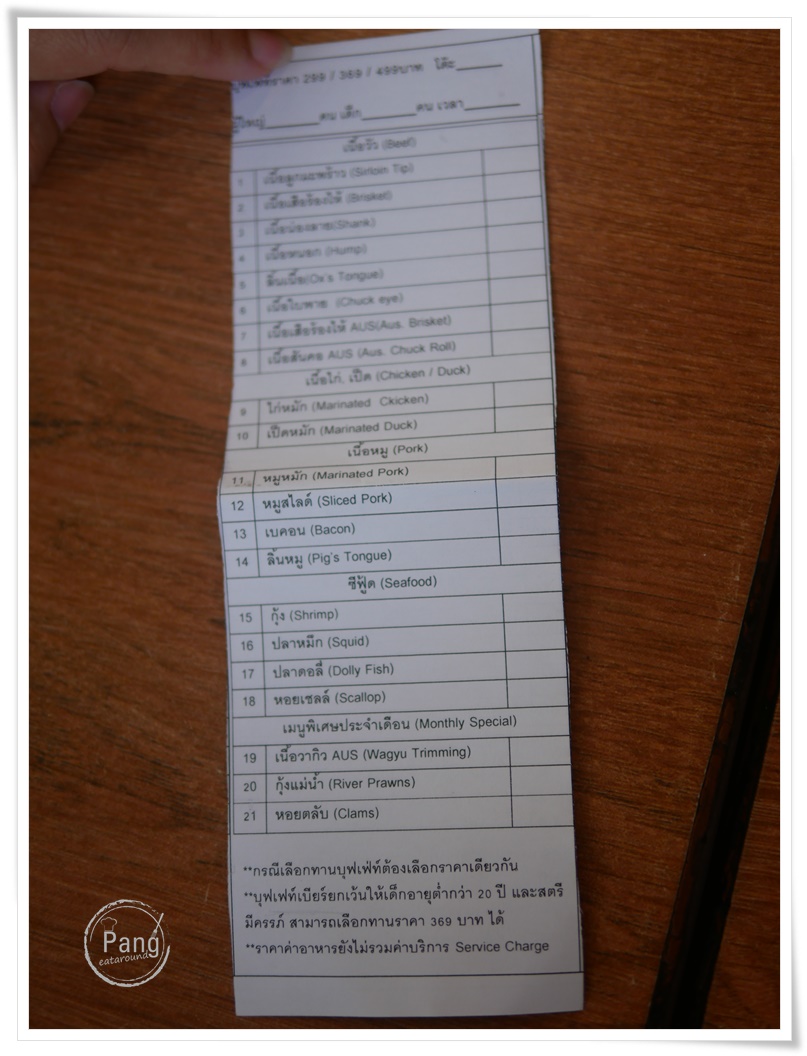 บุฟเฟ่ท์ราคา 299 / 369 / 499บาท โต๊ะ
ผู้ใหญ่ คน เด็ก คน เวลา
เนื้อวัว (Beef)
1 เนื้อลูกมะพร้าว (Sirloin Tip)
2 เนื้อเสือร้องไห้ (Brisket)
3 เนื้อน่องลาย(Shank)
4 เนื้อหนอก (Hump)
5 ลิ้นเนื้อ(Ox's Tongue)
6 เนื้อใบพาย (Chuck eye)
7 เนื้อเสือร้องไห้ AUS(Aus. Brisket)
8 เนื้อสันคอ AUS (Aus. Chuck Roll)
เนื้อไก่, เป็ด (Chicken / Duck)
9 ไก่หมัก (Marinated Ckicken)
10 เป็ดหมัก (Marinated Duck)
เนื้อหมู (Pork)
11 หมูหมัก (Marinated Pork)
12 หมูสไลด์ (Sliced Pork)
13 เบคอน (Bacon)
14 ลิ้นหมู (Pig's Tongue)
ซีฟู้ด (Seafood)
15 กุ้ง (Shrimp)
16 ปลาหมึก (Squid)
17 ปลาดอลี่ (Dolly Fish)
18 หอยเชลล์ (Scallop)
เมนูพิเศษประจำเดือน (Monthly Special)
19 เนื้อวากิว AUS (Wagyu Trimming)
20 กุ้งแม่น้ำ (River Prawns)
21 หอยตลับ (Clams)
**กรณีเลือกทานบุฟเฟ่ท์ต้องเลือกราคาเดียวกัน
**บุฟเฟท์เบียร์ยกเว้นให้เด็กอายุต่ำกว่า 20 ปี และสตรี
มีครรภ์ สามารถเลือกทานราคา 369 บาท ได้
**ราคาค่าอาหารยังไม่รวมค่าบริการ Service Charge
Pang
eataround